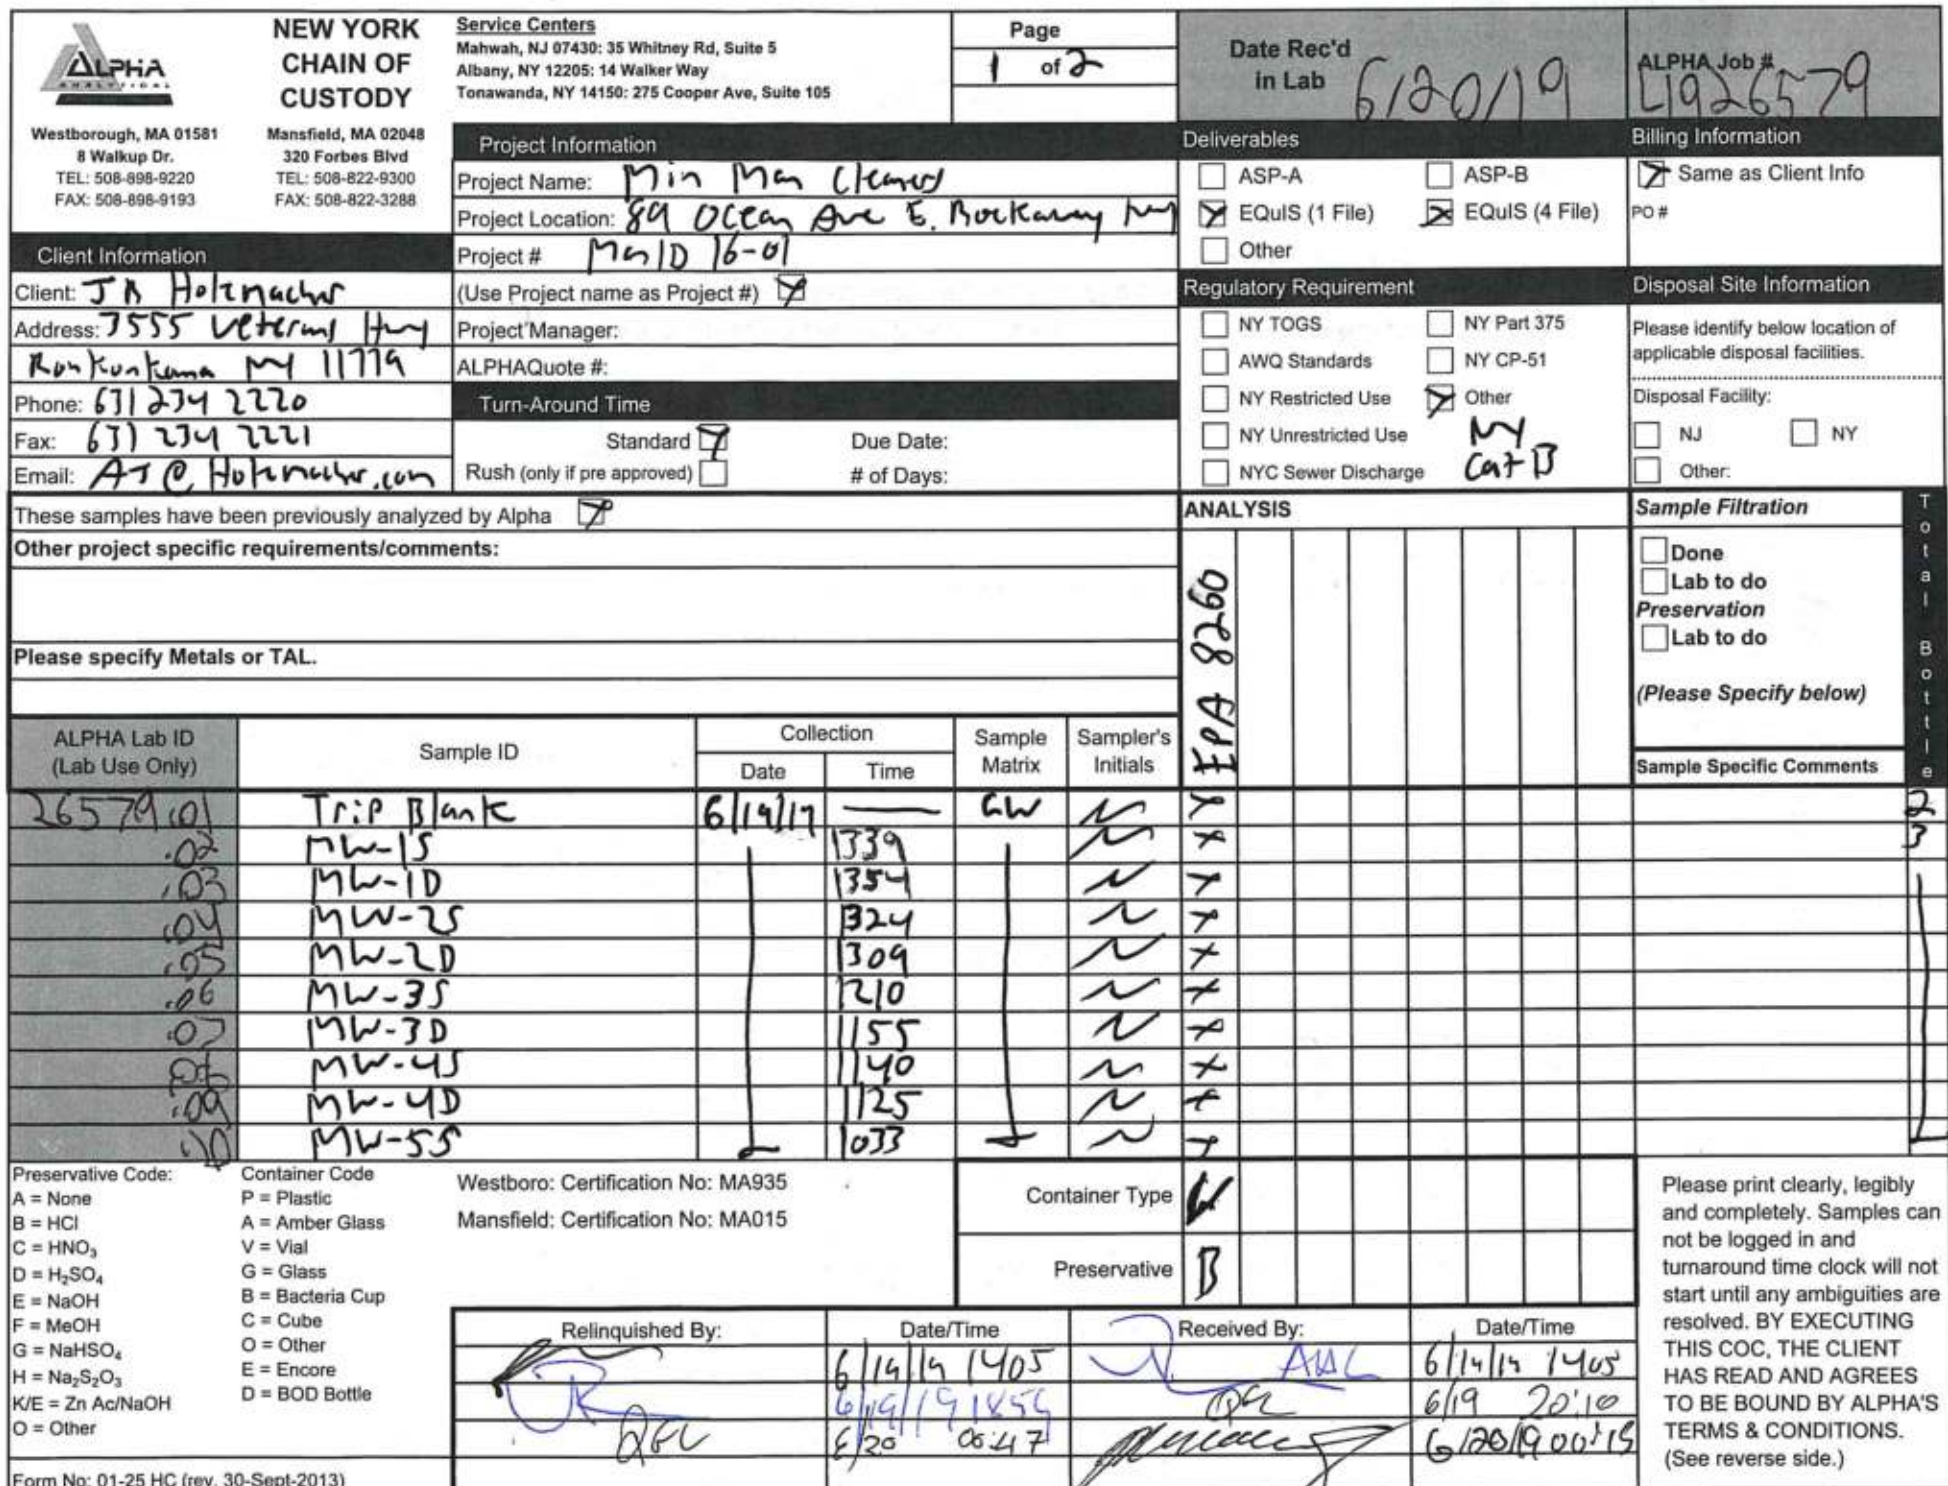 ALPHA
ANALYTICAL
NEW YORK
CHAIN OF
CUSTODY
Westborough, MA 01581
8 Walkup Dr.
TEL: 508-898-9220
FAX: 508-898-9193
Mansfield, MA 02048
320 Forbes Blvd
TEL: 508-822-9300
FAX: 508-822-3288
Service Centers
Mahwah, NJ 07430: 35 Whitney Rd, Suite 5
Albany, NY 12205: 14 Walker Way
Tonawanda, NY 14150: 275 Cooper Ave, Suite 105
Page
1 of 2
Date Rec'd
in Lab 6/20/19
ALPHA Job #
L1926579
Project Information
Project Name: Min Man Cleaners
Project Location: 89 Ocean Ave E. Rockaway NY
Project # 16-01
(Use Project name as Project #)
Project Manager:
ALPHAQuote #:
Turn-Around Time
Standard
Due Date:
Rush (only if pre approved)
# of Days:
Client Information
Client: Holzmacher
Address: 3555 Veterans Hwy
Ronkonkoma NY 11779
Phone: 631 234 2220
Fax: 631 234 2221
Email: AJ@Holzmacher.com
Deliverables
ASP-A
ASP-B
EQuIS (1 File)
EQuIS (4 File)
Other
Billing Information
Same as Client Info
PO #
Regulatory Requirement
NY TOGS
NY Part 375
AWQ Standards
NY CP-51
NY Restricted Use
Other
NY Unrestricted Use
NY
NYC Sewer Discharge
Cat B
Disposal Site Information
Please identify below location of
applicable disposal facilities.
Disposal Facility:
NJ
NY
Other:
These samples have been previously analyzed by Alpha
Other project specific requirements/comments:
Please specify Metals or TAL.
ANALYSIS
EPA 8260
Sample Filtration
Done
Lab to do
Preservation
Lab to do
(Please Specify below)
Sample Specific Comments
Total Bottle
ALPHA Lab ID
(Lab Use Only)
Sample ID
Collection
Date
Time
Sample
Matrix
Sampler's
Initials
26579.01 Trip Blank 6/19/19 — GW X 2
.02 MW-1S 1339 X 3
.03 MW-1D 1354 X
.04 MW-2S 1324 X
.05 MW-2D 1309 X
.06 MW-3S 1210 X
.07 MW-3D 1155 X
.08 MW-4S 1140 X
.09 MW-4D 1125 X
.10 MW-5S 1033 X
Preservative Code:
A = None
B = HCl
C = HNO₃
D = H₂SO₄
E = NaOH
F = MeOH
G = NaHSO₄
H = Na₂S₂O₃
K/E = Zn Ac/NaOH
O = Other
Container Code
P = Plastic
A = Amber Glass
V = Vial
G = Glass
B = Bacteria Cup
C = Cube
O = Other
E = Encore
D = BOD Bottle
Westboro: Certification No: MA935
Mansfield: Certification No: MA015
Container Type V
Preservative B
Relinquished By:
Date/Time
Received By:
Date/Time
6/19/19 1405
AAL
6/19/19 1405
6/19/19
6/19 20:10
6/20
6/20/19 00:15
Please print clearly, legibly
and completely. Samples can
not be logged in and
turnaround time clock will not
start until any ambiguities are
resolved. BY EXECUTING
THIS COC, THE CLIENT
HAS READ AND AGREES
TO BE BOUND BY ALPHA'S
TERMS & CONDITIONS.
(See reverse side.)
Form No: 01-25 HC (rev. 30-Sept-2013)